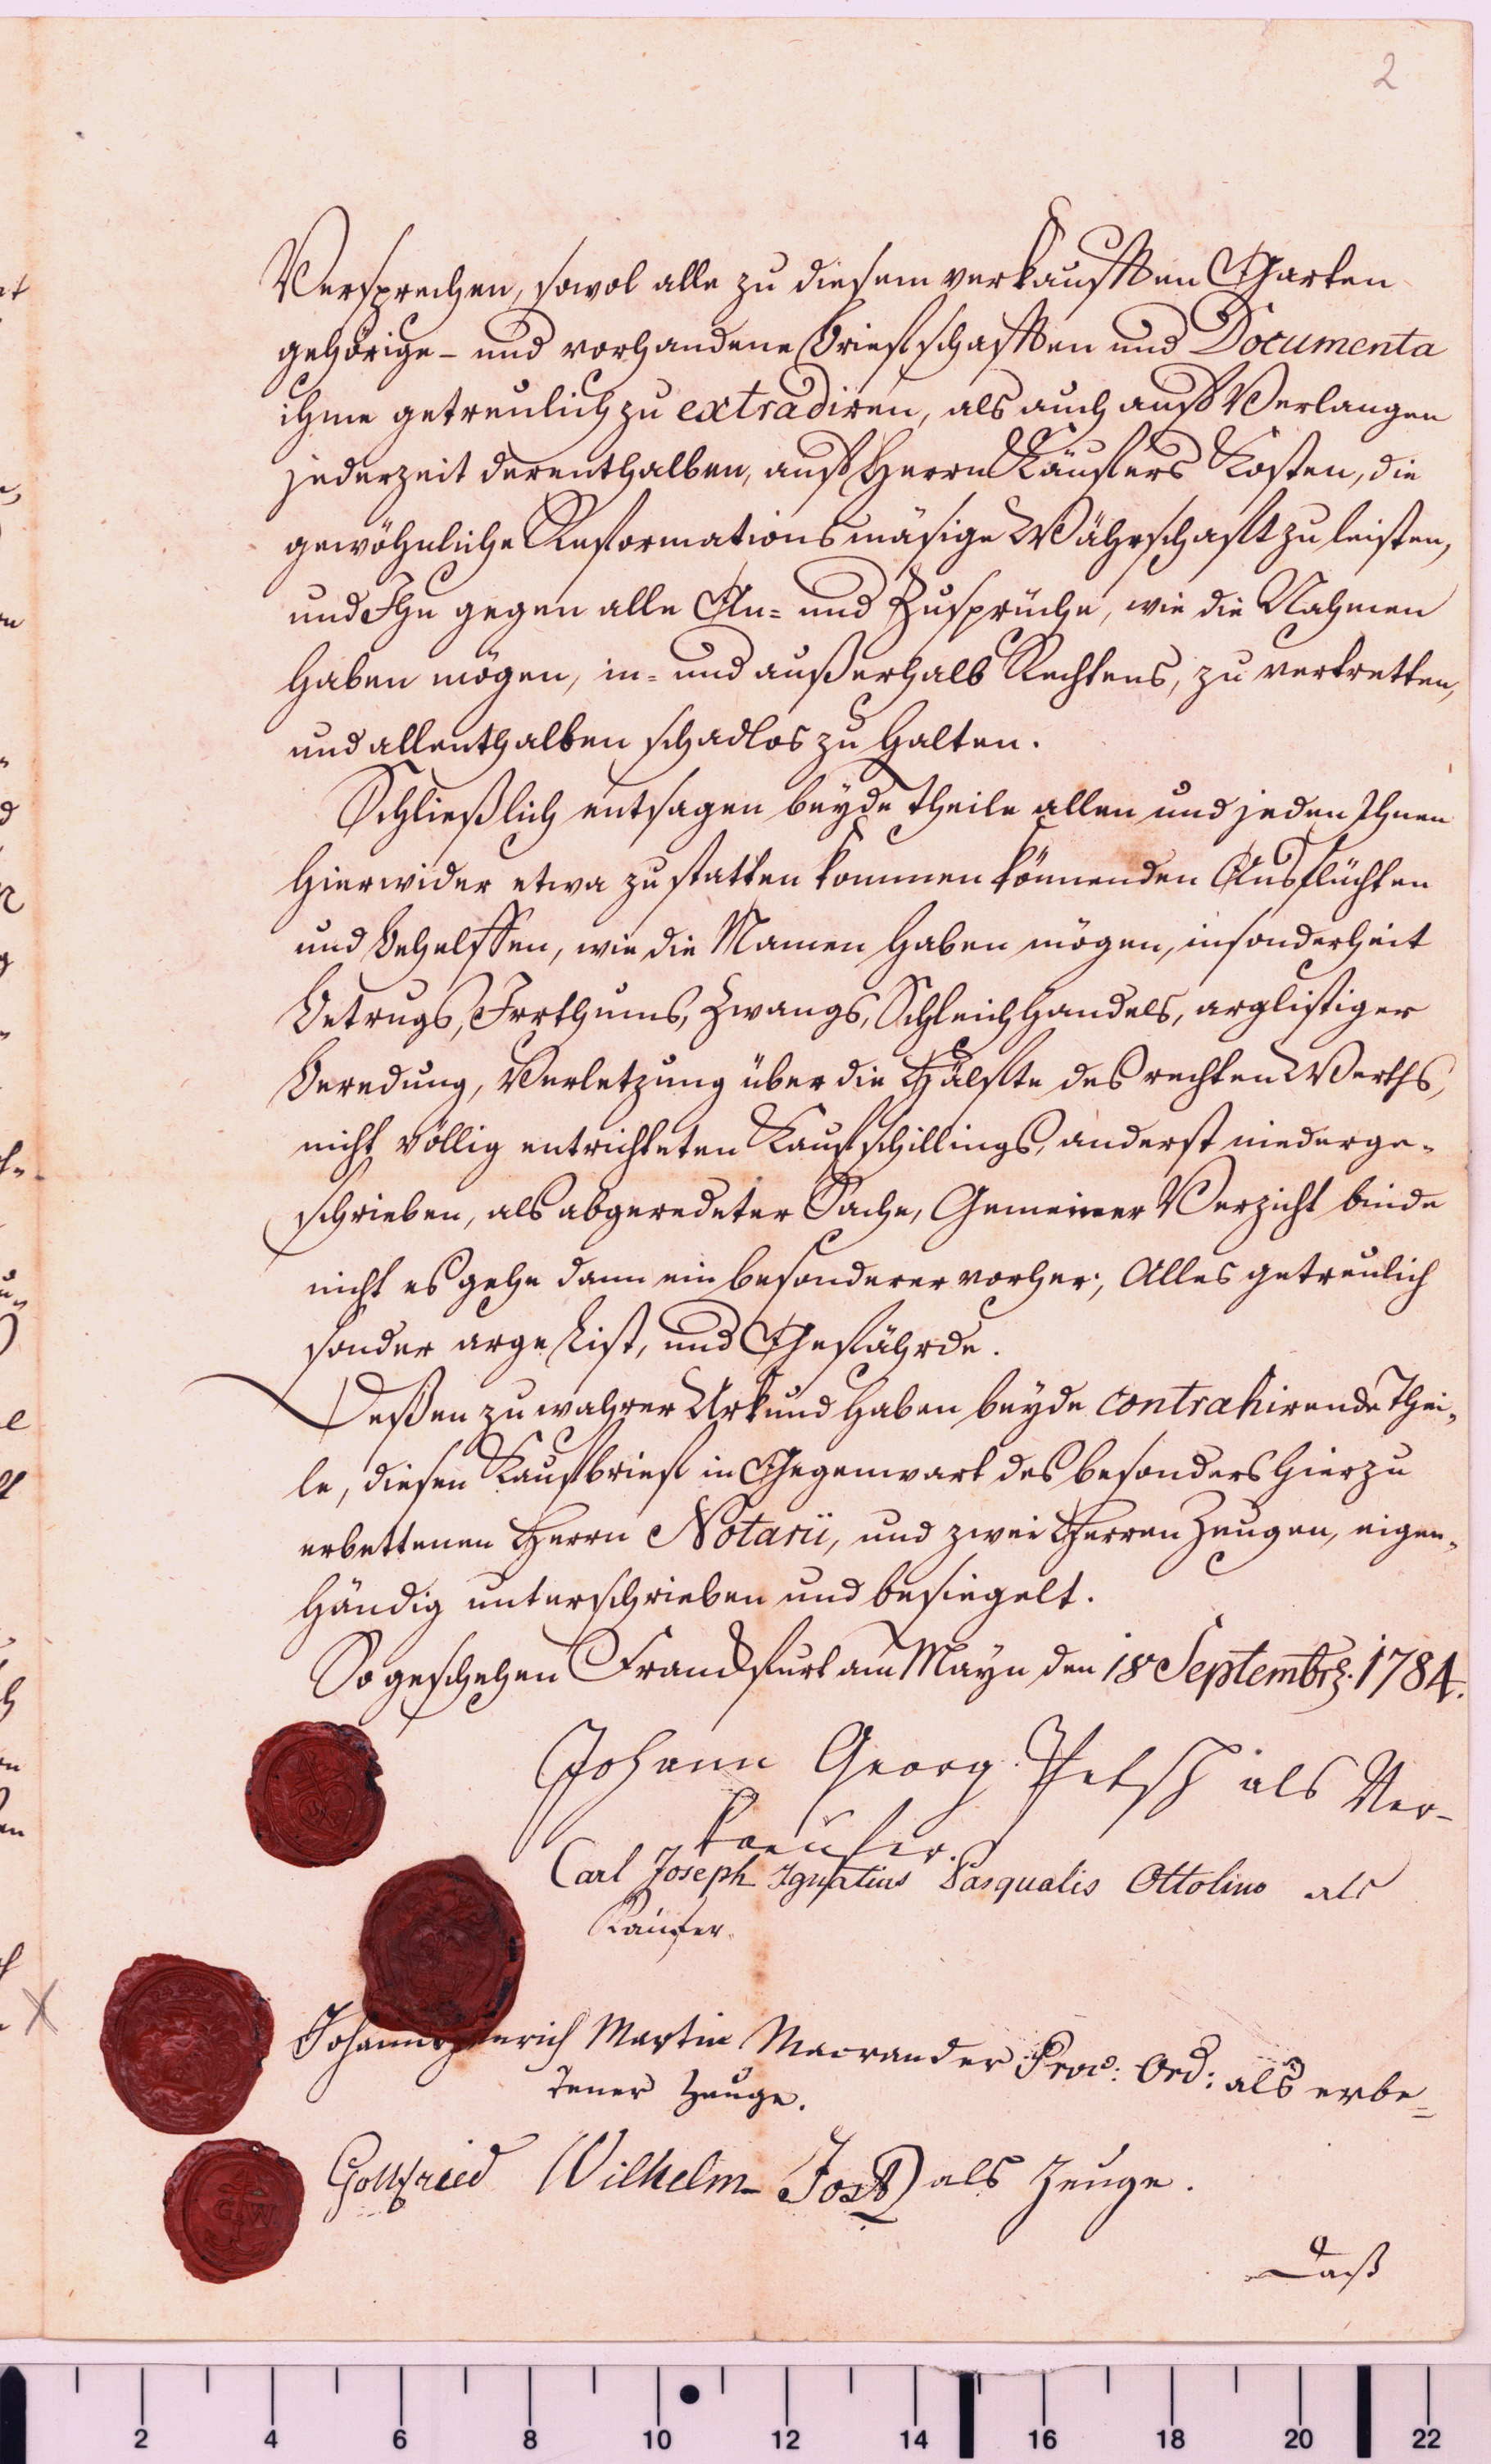 2
Versprechen, sowol alle zu diesem verkaufften Garten
gehörige- und vorhandene Briefschafften und Documenta
ihme getreulich zu extradiren, als auch auf Verlangen
jederzeit derenthalben, auf Herrn Käufers Kosten, die
gewöhnliche Reformationsmäsige Währschaft zu leisten,
und Ihn gegen alle An= und Zusprüche, wie die Nahmen
haben mögen, in= und außerhalb Rechtens, zu vertretten,
und allenthalben schadlos zu halten.
Schließlich entsagen beyde Theile allen und jeden Ihnen
hierwider etwa zu statten kommen könnenden Ausflüchten
und Behelffen, wie die Namen haben mögen, insonderheit
Betrugs, Irrthums, Zwangs, Schleichhandels, arglistiger
Beredung, Verletzung über die Hälfte des rechten Werths,
nicht völlig entrichteten Kaufschillings, anderst niederge-
schrieben, als abgeredeter Sache, Gemeiner Verzicht binde
nicht es gehe dann ein besonderer vorher; Alles getreulich
sonder arge List, und Gefährde.
Deßen zu wahrer Urkund haben beyde contrahirende Thei-
le, diesen Kaufbrief in Gegenwart des besonders hierzu
erbettenen Herrn Notarii, und zwei Herren Zeugen, eigen-
händig unterschrieben und besiegelt.
So geschehen Franckfurt am Mayn den 18 Septembrs. 1784.
Johann Georg Petsch als Ver-
kaeufer.
Carl Joseph Ignatius Pasqualis Ottolino als
Käufer.
Johann Henrich Martin Macrander Proc: Ord: als erbe=
tener Zeuge.
Gottfried Wilhelm Jost als Zeuge.
G W
Daß
2 4 6 8 10 12 14 16 18 20 22